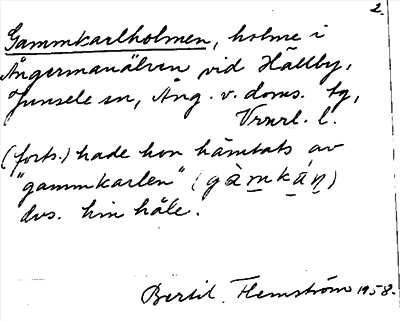 2.
Gammkarlholmen, holme i
Ångermanälven vid Hällby,
Junsele sn, Ång. v. doms. tg,
Vrnrl. l.
(forts.) hade hon hämtats av
"gammkarlen" (gàmká̄ṇ)
dvs. hin håle.
Bertil Flemström 1958.